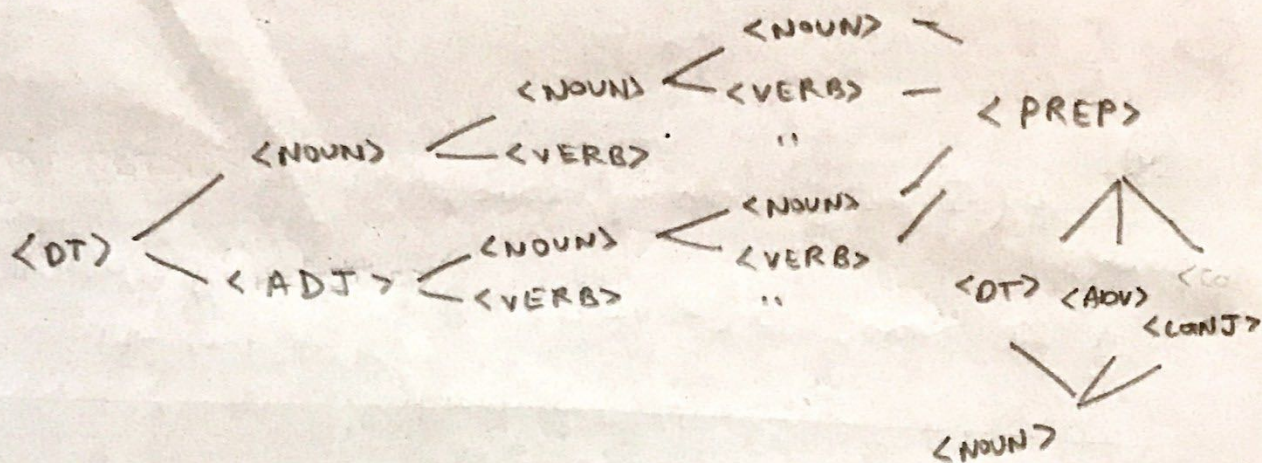 <NOUN>
<NOUN> <VERB> <PREP>
<NOUN> <VERB> "
<DT> <NOUN>
<ADJ> <NOUN> <VERB>
<VERB> " <DT> <ADV>
<CONJ>
<NOUN>